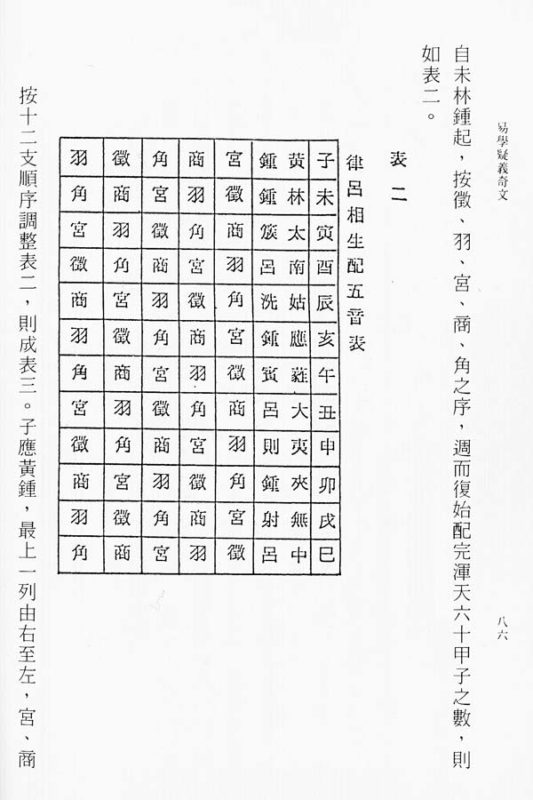 易學疑義奇文
八六
自未林鍾起，按徵、羽、宮、商、角之序，週而復始配完渾天六十甲子之數，則
如表二。
表二
律呂相生配五音表
子 黃鍾 宮 商 角 徵 羽
未 林鍾 徵 羽 宮 商 角
寅 太簇 商 角 徵 羽 宮
酉 南呂 羽 宮 商 角 徵
辰 姑洗 角 徵 羽 宮 商
亥 應鍾 宮 商 角 徵 羽
午 蕤賓 徵 羽 宮 商 角
丑 大呂 商 角 徵 羽 宮
申 夷則 羽 宮 商 角 徵
卯 夾鍾 角 徵 羽 宮 商
戌 無射 宮 商 角 徵 羽
巳 中呂 徵 羽 宮 商 角
按十二支順序調整表二，則成表三。子應黃鍾，最上一列由右至左，宮、商